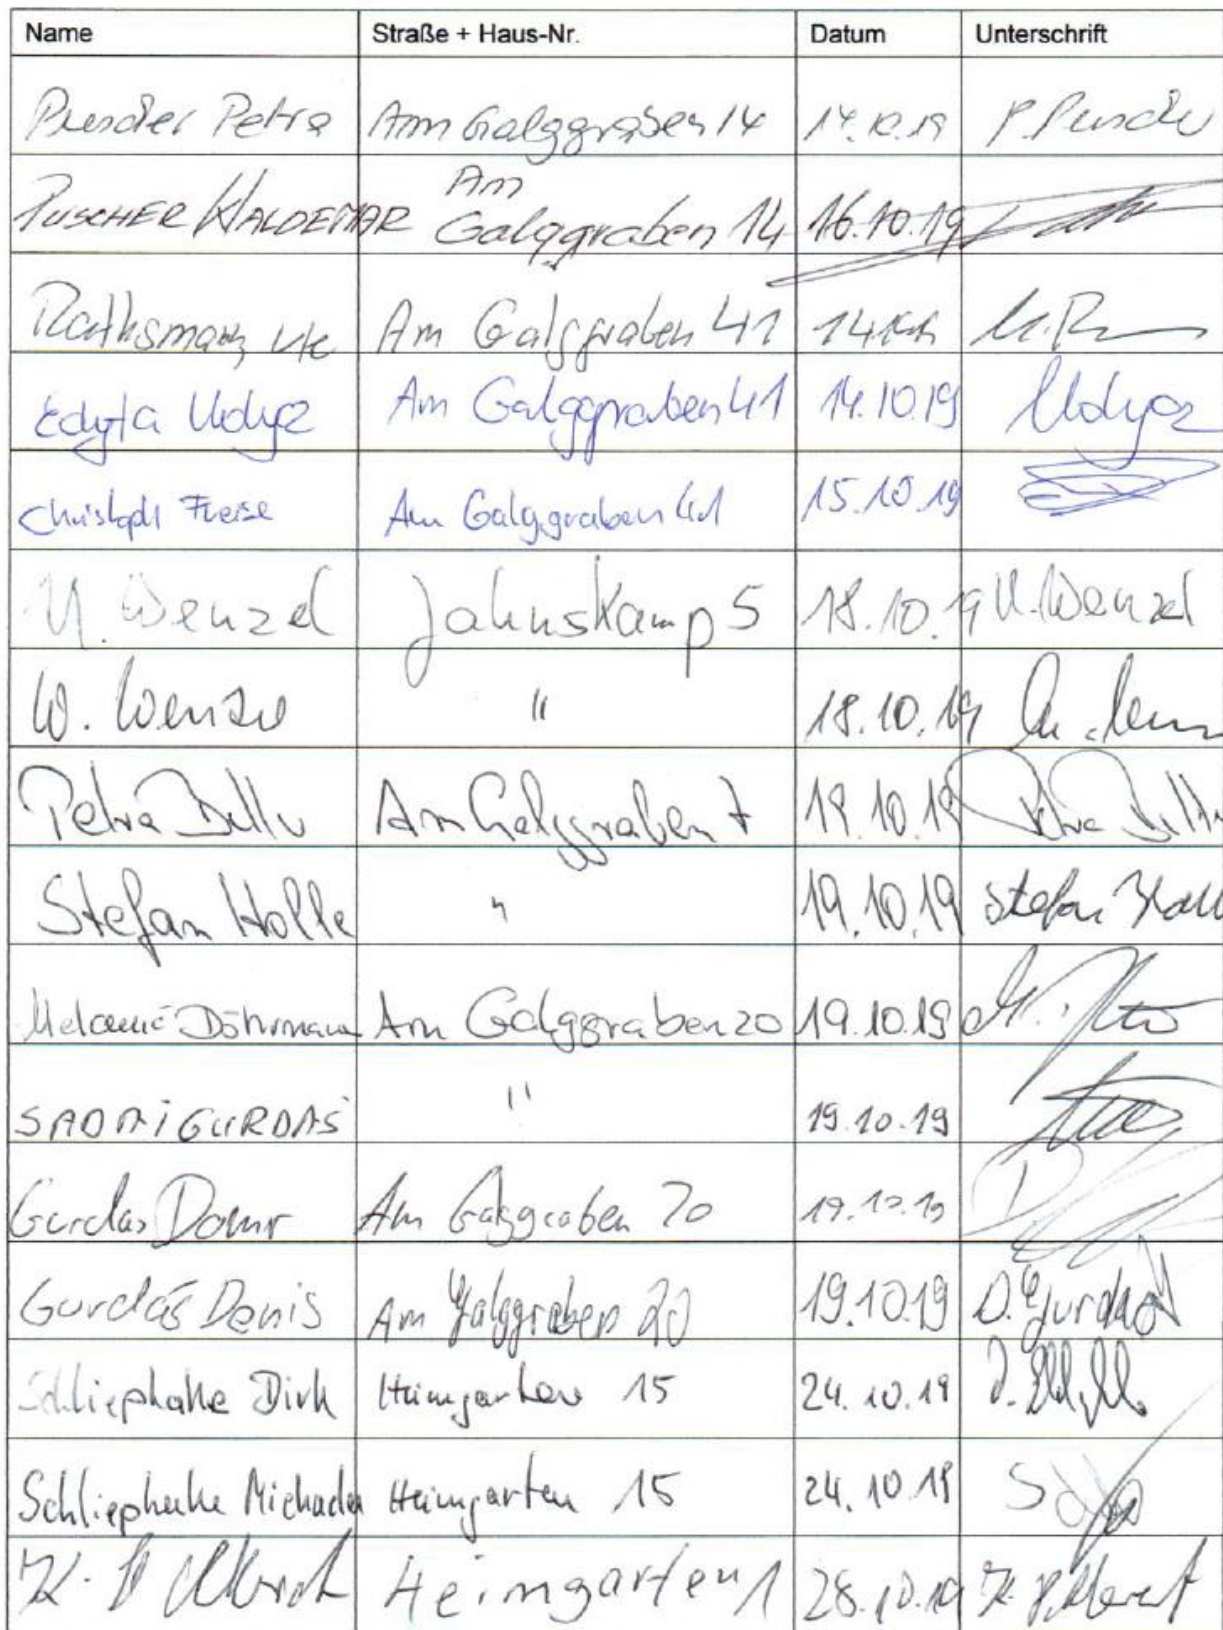 Name Straße + Haus-Nr. Datum Unterschrift
Puscher Petra Am Galggraben 14 14.10.19 P. Puscher
Am
PUSCHER WALDEMAR Galggraben 14 16.10.19
Rathsmann, Ute Am Galggraben 41 U. R
Edyta Udycz Am Galggraben 41 14.10.19 Udycz
Christoph Freise Am Galggraben 41 15.10.19
U. Wenzel Jahnskamp 5 18.10.19 U. Wenzel
W. Wenzel " 18.10.19
Petra Am Galggraben 7 19.10.19 Petra
Stefan Holle " 19.10.19 Stefan Holle
Melanie Döhrmann Am Galggraben 20 19.10.19
SADRI GURDAS " 19.10.19
Gurdas Am Galggraben 20 19.10.19
Gurdas Denis Am Galggraben 20 19.10.19 D. Gurdas
Schliephake Dirk Heimgarten 15 24.10.19
Schliephake Michaela Heimgarten 15 24.10.19
Heimgarten 1 28.10.19